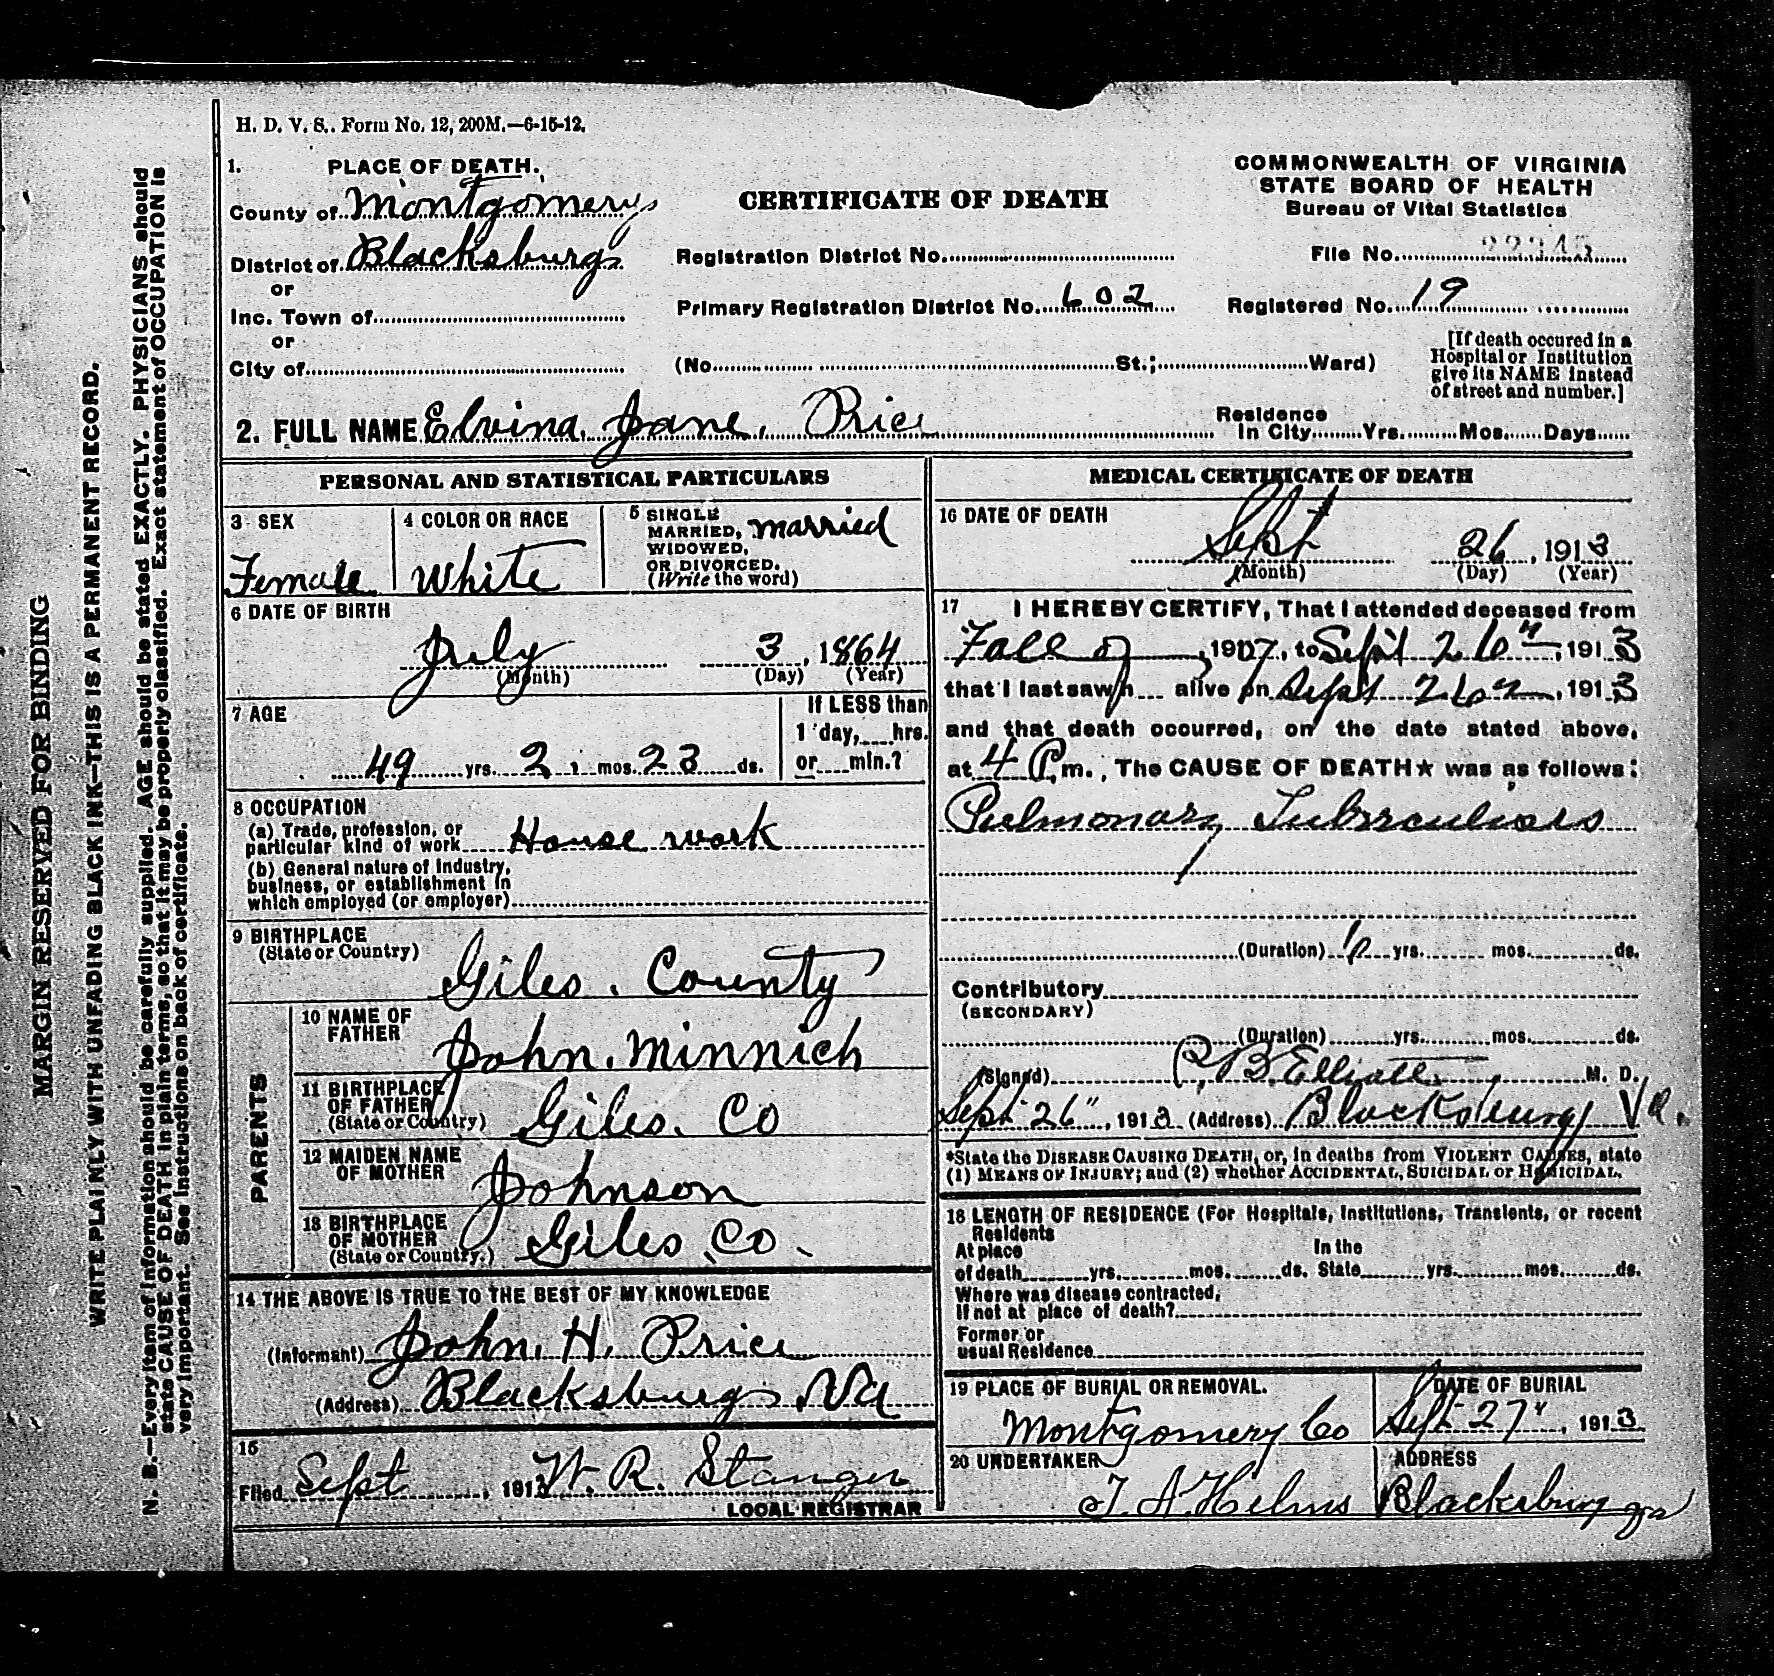 H. D. V. S.. Form No. 12, 200M.—6-15-12.
1. PLACE OF DEATH.
County of Montgomery
District of Blacksburg
or
Inc. Town of
or
City of
CERTIFICATE OF DEATH
Registration District No.
Primary Registration District No. 602
(No. St.; Ward)
COMMONWEALTH OF VIRGINIA
STATE BOARD OF HEALTH
Bureau of Vital Statistics
File No. 22345
Registered No. 19
[If death occured in a
Hospital or Institution
give its NAME instead
of street and number.]
2. FULL NAME Elvina Jane Price
Residence
In City Yrs. Mos. Days
PERSONAL AND STATISTICAL PARTICULARS
3 SEX
Female
4 COLOR OR RACE
White
5 SINGLE
MARRIED, married
WIDOWED,
OR DIVORCED.
(Write the word)
6 DATE OF BIRTH
July 3, 1864
(Month) (Day) (Year)
7 AGE
49 yrs. 2 mos. 23 ds.
If LESS than
1 day, hrs.
or min.?
8 OCCUPATION
(a) Trade, profession, or
particular kind of work House work
(b) General nature of Industry,
business, or establishment in
which employed (or employer)
9 BIRTHPLACE
(State or Country)
Giles. County
PARENTS
10 NAME OF
FATHER
John. Minnich
11 BIRTHPLACE
OF FATHER
(State or Country) Giles. Co
12 MAIDEN NAME
OF MOTHER
Johnson
13 BIRTHPLACE
OF MOTHER
(State or Country.) Giles Co.
14 THE ABOVE IS TRUE TO THE BEST OF MY KNOWLEDGE
(Informant) John. H. Price
(Address) Blacksburg Va
15
Filed Sept, 1913 W. R. Stanger
LOCAL REGISTRAR
MEDICAL CERTIFICATE OF DEATH
16 DATE OF DEATH
Sept 26, 1913
(Month) (Day) (Year)
17 I HEREBY CERTIFY, That I attended deceased from
Fall of, 1907, to Sept 26th, 1913
that I last saw h alive on Sept 26th, 1913
and that death occurred, on the date stated above,
at 4 P. m. The CAUSE OF DEATH★ was as follows:
Pulmonary Tuberculosis
(Duration) 6 yrs. mos. ds.
Contributory
(SECONDARY)
(Duration) yrs. mos. ds.
(Signed) B. Elliott M. D.
Sept 26", 1913 (Address) Blacksburg Va.
*State the DISEASE CAUSING DEATH, or, in deaths from VIOLENT CAUSES, state
(1) MEANS OF INJURY; and (2) whether ACCIDENTAL, SUICIDAL or HOMICIDAL.
18 LENGTH OF RESIDENCE (For Hospitals, Institutions, Transients, or recent
Residents
At place In the
of death yrs. mos. ds. State yrs. mos. ds.
Where was disease contracted,
If not at place of death?
Former or
usual Residence
19 PLACE OF BURIAL OR REMOVAL.
Montgomery Co
DATE OF BURIAL
Sept 27", 1913
20 UNDERTAKER
T. A. Helms
ADDRESS
Blacksburg Va
MARGIN RESERVED FOR BINDING
WRITE PLAINLY WITH UNFADING BLACK INK—THIS IS A PERMANENT RECORD.
N. B.—Every item of information should be carefully supplied. AGE should be stated EXACTLY. PHYSICIANS should
state CAUSE OF DEATH in plain terms, so that it may be properly classified. Exact statement of OCCUPATION is
very important. See instructions on back of certificate.